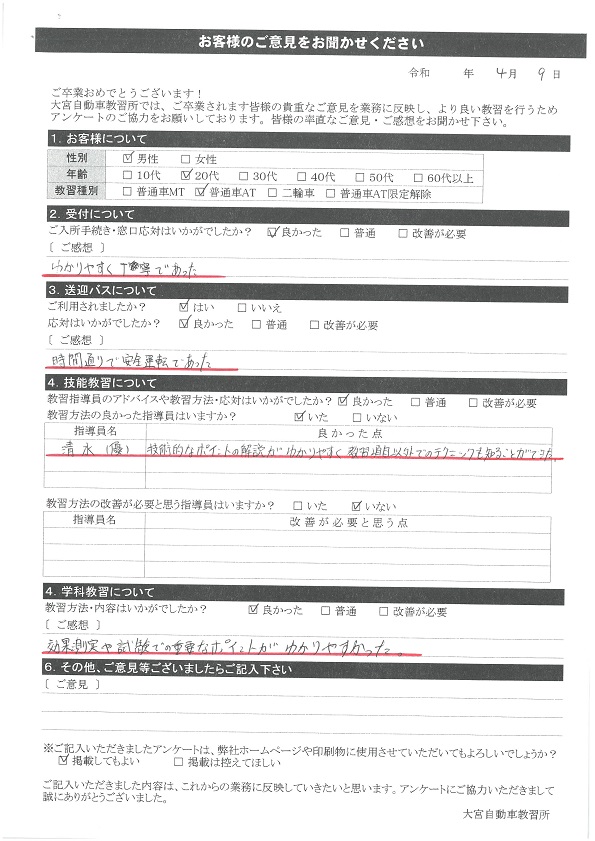 お客様のご意見をお聞かせください
令和 年 4月 9日
ご卒業おめでとうございます！
大宮自動車教習所では、ご卒業されます皆様の貴重なご意見を業務に反映し、より良い教習を行うため
アンケートのご協力をお願いしております。皆様の率直なご意見・ご感想をお聞かせ下さい。
1. お客様について
性別 ☑男性 □女性
年齢 □10代 ☑20代 □30代 □40代 □50代 □60代以上
教習種別 □普通車MT ☑普通車AT □二輪車 □普通車AT限定解除
2. 受付について
ご入所手続き・窓口応対はいかがでしたか？ ☑良かった □普通 □改善が必要
〔 ご感想 〕
わかりやすく丁寧であった
3. 送迎バスについて
ご利用されましたか？ ☑はい □いいえ
応対はいかがでしたか？ ☑良かった □普通 □改善が必要
〔 ご感想 〕
時間通りで安全運転であった
4. 技能教習について
教習指導員のアドバイスや教習方法・応対はいかがでしたか？ ☑良かった □普通 □改善が必要
教習方法の良かった指導員はいますか？ ☑いた □いない
指導員名 良かった点
清水(優) 技術的なポイントの解説がわかりやすく 教習項目以外でのテクニックも知ることができた。
教習方法の改善が必要と思う指導員はいますか？ □いた ☑いない
指導員名 改善が必要と思う点
4. 学科教習について
教習方法・内容はいかがでしたか？ ☑良かった □普通 □改善が必要
〔 ご感想 〕
効果測定や試験での重要なポイントが わかりやすかった。
6. その他、ご意見等ございましたらご記入下さい
〔 ご意見 〕
※ご記入いただきましたアンケートは、弊社ホームページや印刷物に使用させていただいてもよろしいでしょうか？
☑掲載してもよい □掲載は控えてほしい
ご記入いただきました内容は、これからの業務に反映していきたいと思います。アンケートにご協力いただきまして
誠にありがとうございました。
大宮自動車教習所